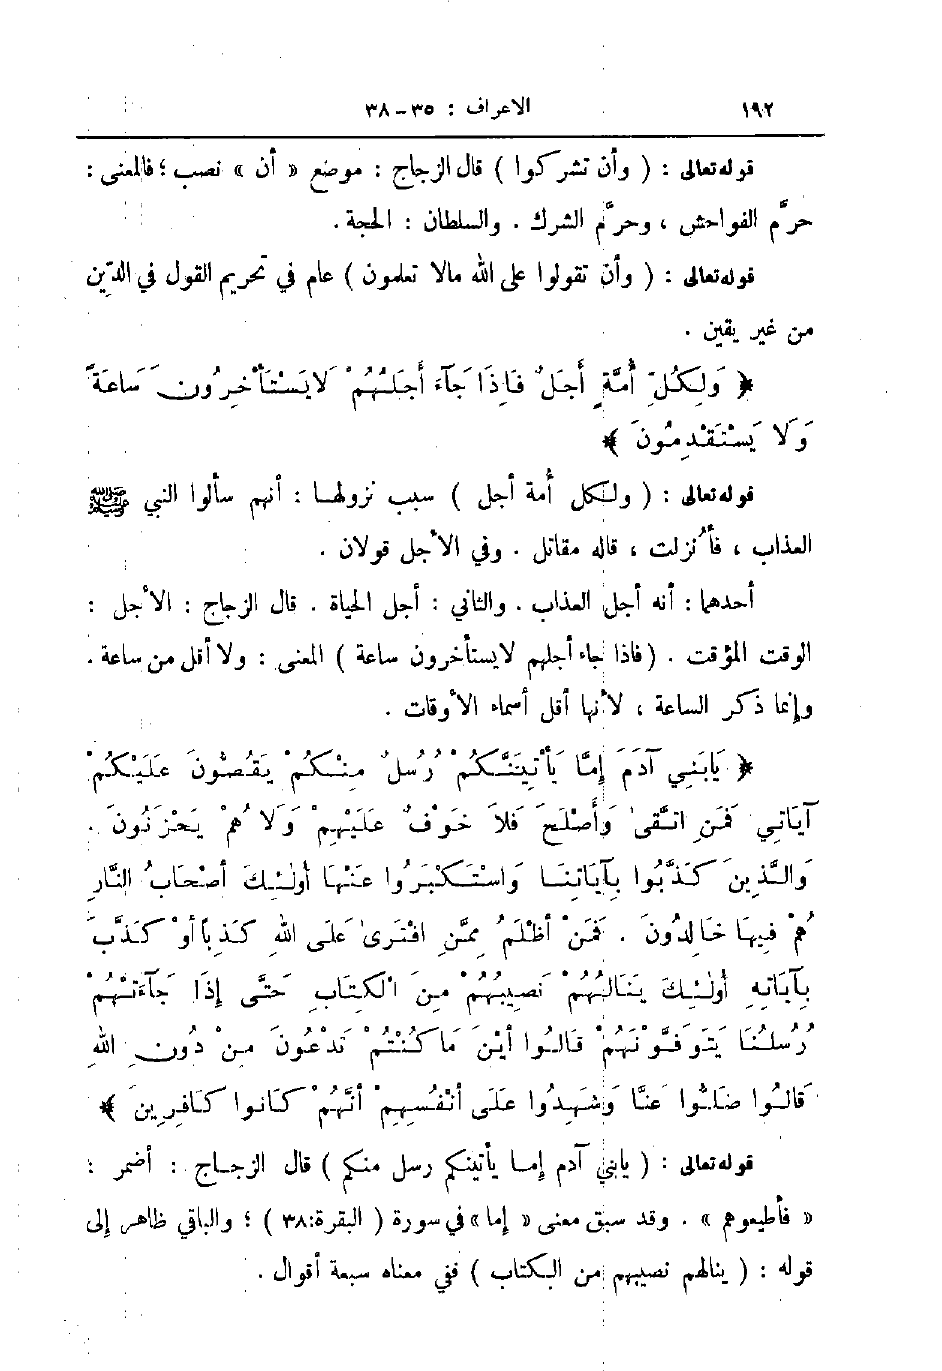 ١٩٢ الاعراف : ٣٥-٣٨
قوله تعالى : ( وأن تشركوا ) قال الزجاج : موضع « أن » نصب ؛ فالمعنى :
حرَّم الفواحش ، وحرَّم الشرك . والسلطان : الحجة .
قوله تعالى : ( وأن تقولوا على الله مالا تعلمون ) عام في تحريم القول في الدِّين
من غير يقين .
﴿ وَلِكُلِّ أُمَّةٍ أَجَلٌ فَإِذَا جَآءَ أَجَلُهُمْ لَا يَسْتَأْخِرُونَ سَاعَةً
وَلَا يَسْتَقْدِمُونَ ﴾
قوله تعالى : ( ولكل أُمة أجل ) سبب نزولها : أنهم سألوا النبي ﷺ
العذاب ، فأُنزلت ، قاله مقاتل . وفي الأجل قولان .
أحدهما : أنه أجل العذاب . والثاني : أجل الحياة . قال الزجاج : الأجل :
الوقت المؤقت . ( فاذا جاء أجلهم لايستأخرون ساعة ) المعنى : ولا أقل من ساعة .
وإنما ذكر الساعة ، لأنها أقل أسماء الأوقات .
﴿ يَابَنِي آدَمَ إِمَّا يَأْتِيَنَّكُمْ رُسُلٌ مِنْكُمْ يَقُصُّونَ عَلَيْكُمْ
آيَاتِي فَمَنِ اتَّقَىٰ وَأَصْلَحَ فَلَا خَوْفٌ عَلَيْهِمْ وَلَا هُمْ يَحْزَنُونَ .
وَالَّذِينَ كَذَّبُوا بِآيَاتِنَا وَاسْتَكْبَرُوا عَنْهَا أُولَٰئِكَ أَصْحَابُ النَّارِ
هُمْ فِيهَا خَالِدُونَ . فَمَنْ أَظْلَمُ مِمَّنِ افْتَرَىٰ عَلَى اللهِ كَذِبًا أَوْ كَذَّبَ
بِآيَاتِهِ أُولَٰئِكَ يَنَالُهُمْ نَصِيبُهُمْ مِنَ الْكِتَابِ حَتَّى إِذَا جَآءَتْهُمْ
رُسُلُنَا يَتَوَفَّوْنَهُمْ قَالُوا أَيْنَ مَا كُنْتُمْ تَدْعُونَ مِنْ دُونِ اللهِ
قَالُوا ضَلُّوا عَنَّا وَشَهِدُوا عَلَى أَنْفُسِهِمْ أَنَّهُمْ كَانُوا كَافِرِينَ ﴾
قوله تعالى : ( يابني آدم إما يأتينكم رسل منكم ) قال الزجاج : أضمر :
« فأطيعوهم » . وقد سبق معنى « إما » في سورة ( البقرة:٣٨ ) ؛ والباقي ظاهر إلى
قوله : ( ينالهم نصيبهم من الكتاب ) ففي معناه سبعة أقوال .